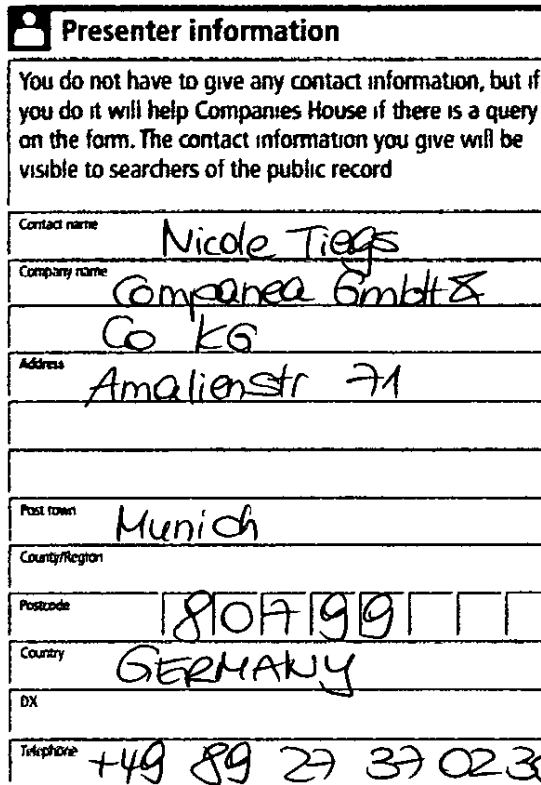 Presenter information
You do not have to give any contact information, but if
you do it will help Companies House if there is a query
on the form. The contact information you give will be
visible to searchers of the public record
Contact name
Nicole Tiegs
Company name
Companea GmbH &
Co KG
Address
Amalienstr 71
Post town
Munich
County/Region
Postcode
80799
Country
GERMANY
DX
Telephone
+49 89 27 37 02 30